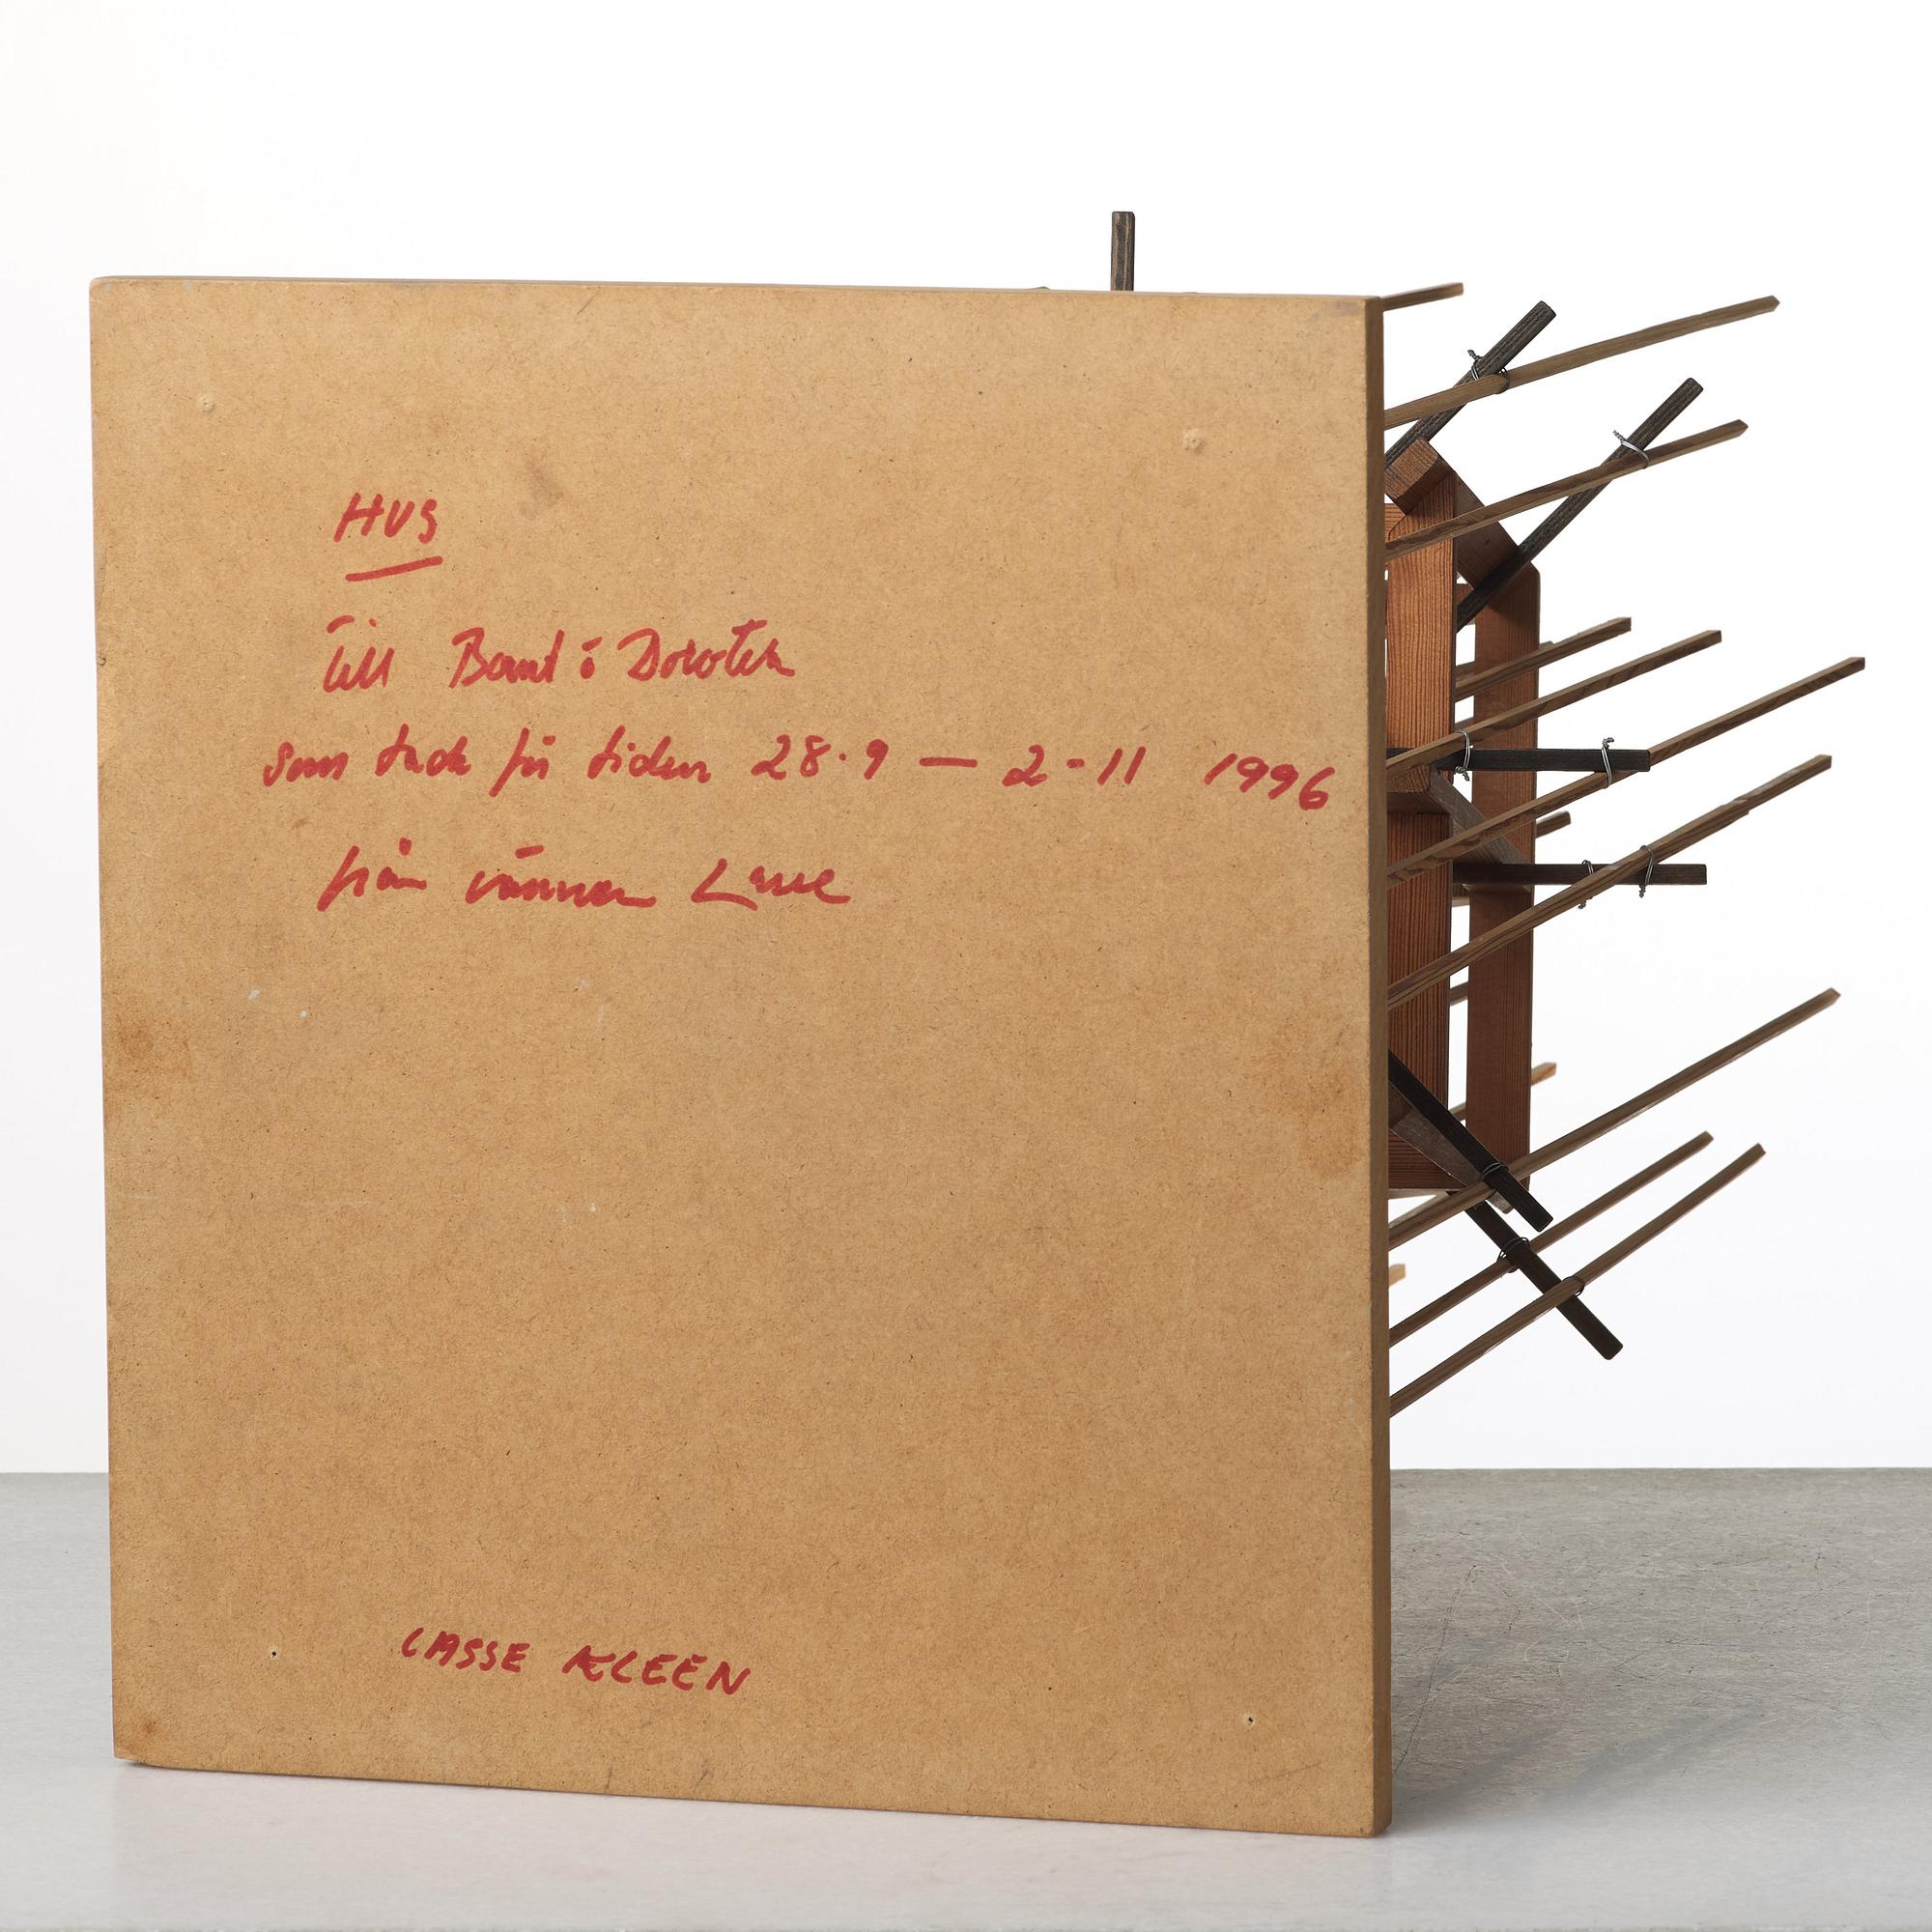 HUS
Till o Dorotea
som tack för tiden 28.9 — 2-11 1996
från vännen Lasse
LASSE KLEEN